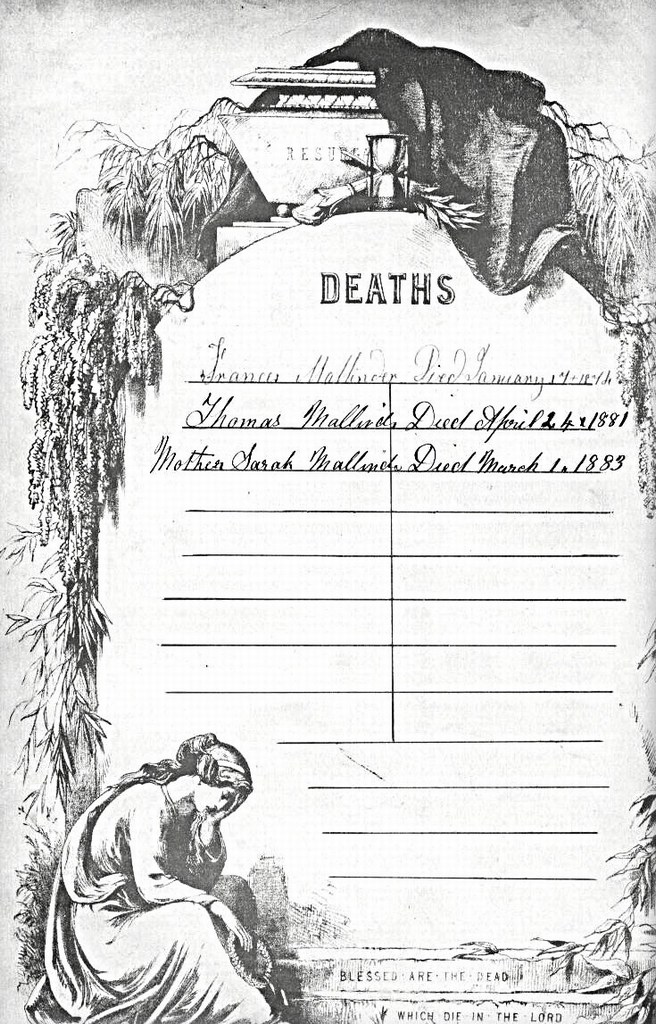 RESU
DEATHS
Frances Mallinder Died January 17. 1874
Thomas Mallinde Died April 24. 1881
Mother Sarah Mallinde Died March 1. 1883
BLESSED · ARE · THE · DEAD
WHICH DIE IN THE LORD